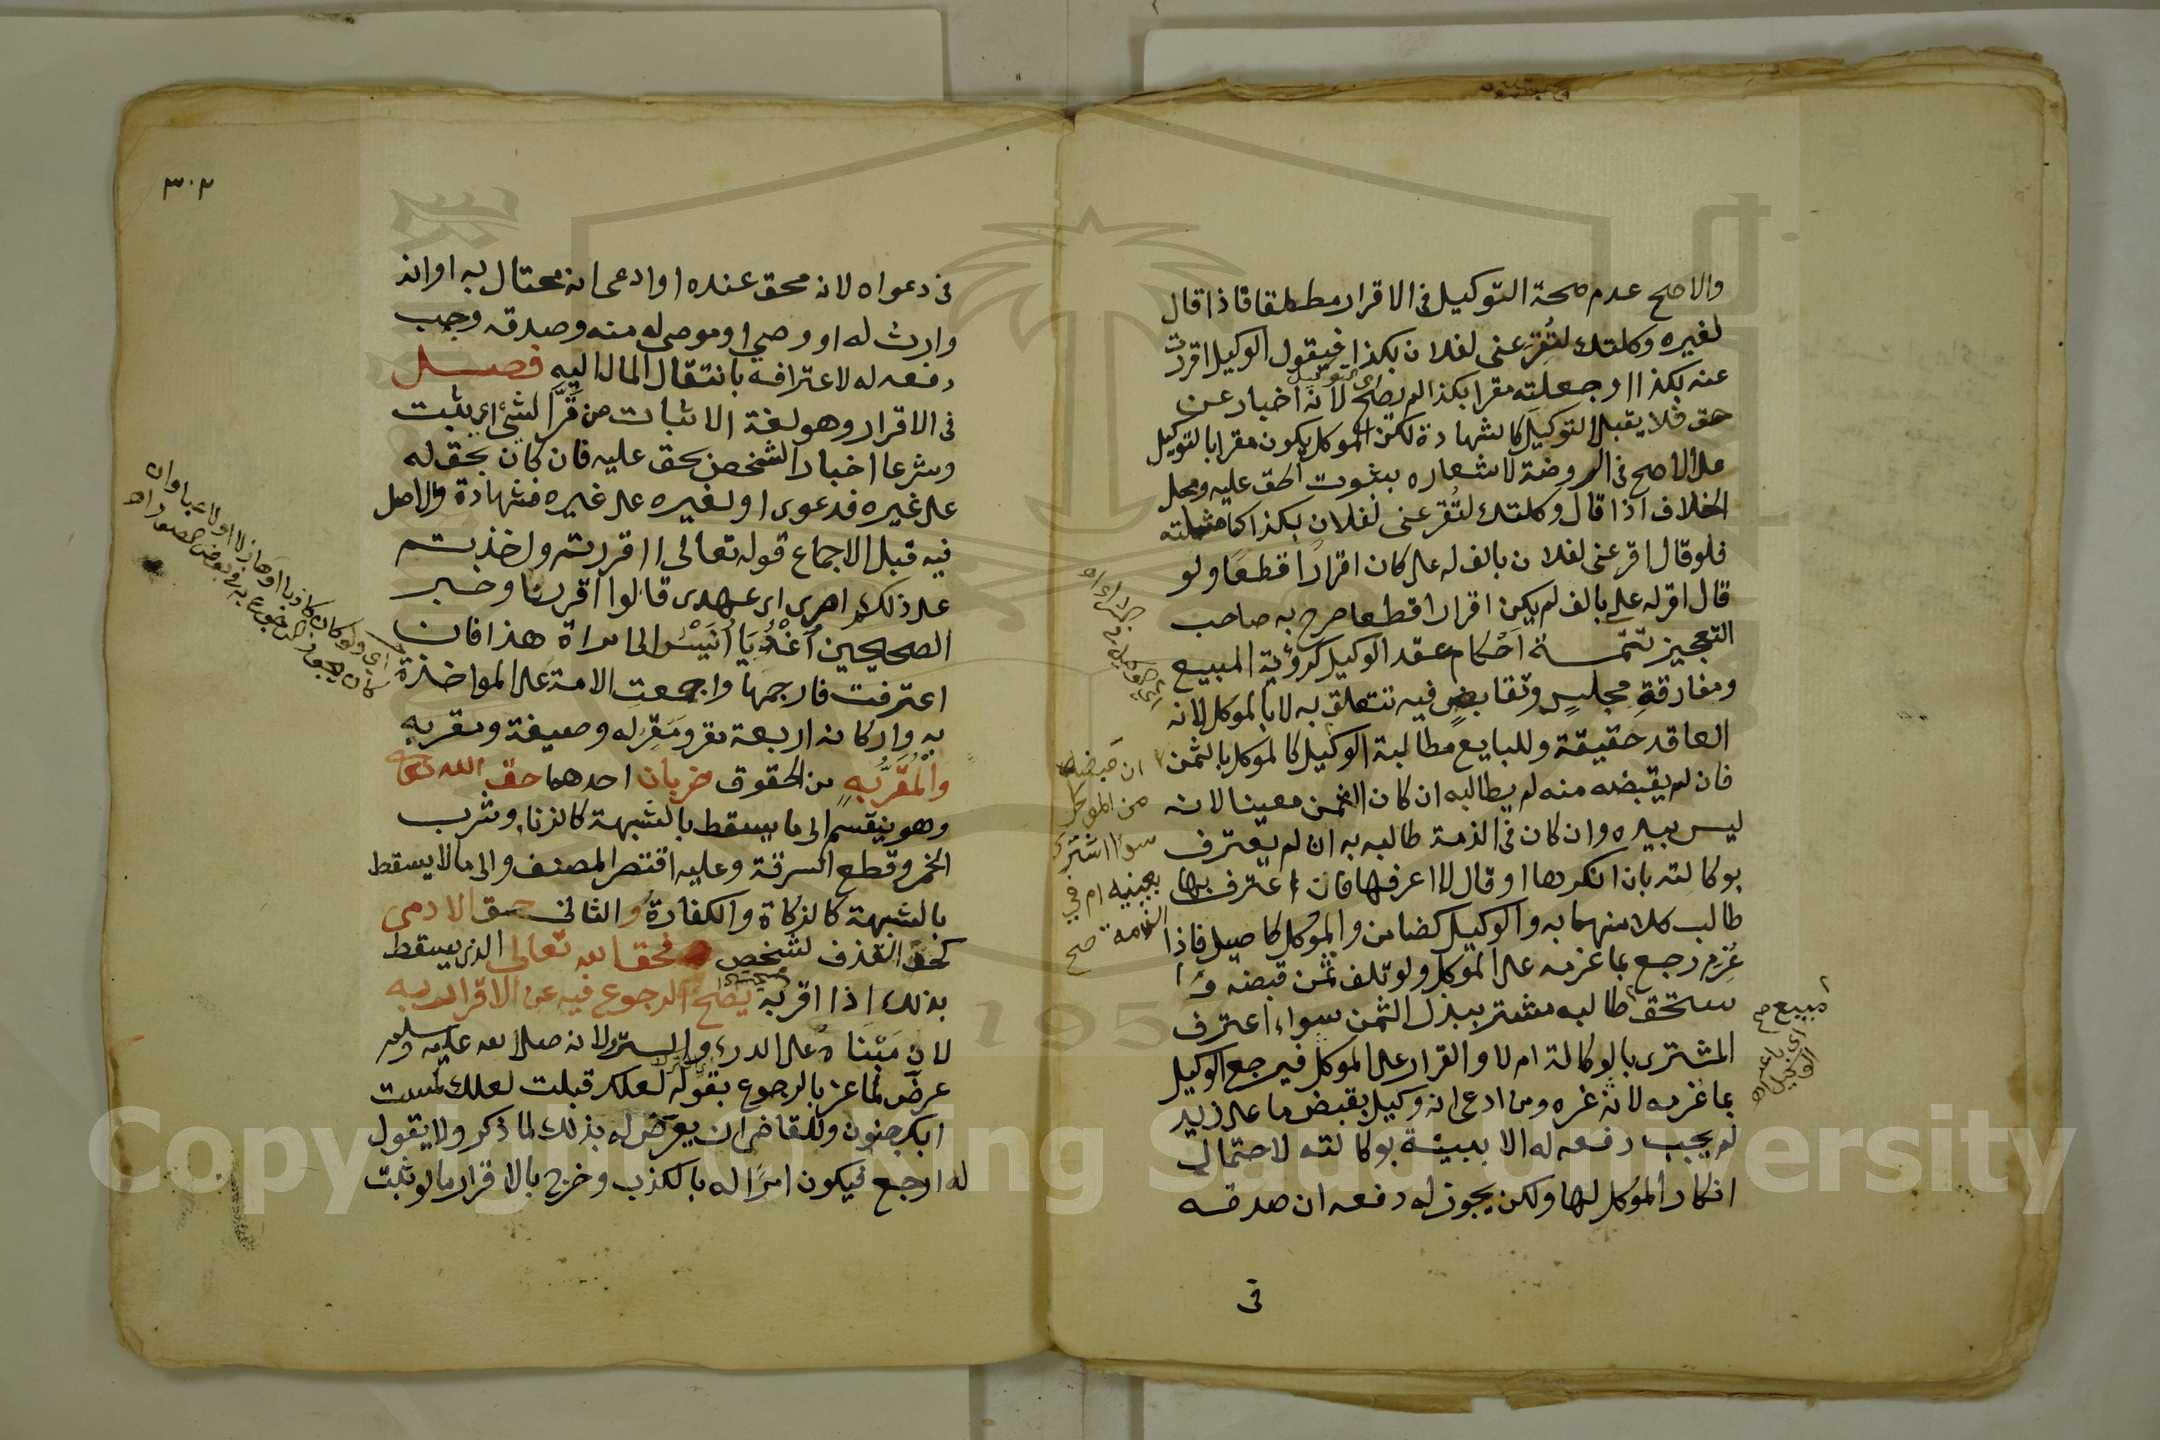 والاصح عدم صحة التوكيل فى الاقرار مطلقا فاذا قال
لغيره وكلتك لتُقر عنى لفلان بكذا فيقول الوكيل اقررت
عنه بكذا او جعلته مقرا بكذا لم يصح لانه اخبار عن
حق فلا يقبل التوكيل كالشهادة لكن الموكل يكون مقرا بالتوكيل
على الاصح فى الروضة لاشعاره بثبوت الحق عليه ومحل
الخلاف اذا قال وكلتك لتُقر عنى لفلان بكذا كما مثلته
فلو قال اقر عنى لفلان بالف له على كان اقرارا قطعا ولو
قال اقر له على بالف لم يكن اقرارا قطعا صرح به صاحب
التعجيز تتمة احكام عقد الوكيل كرؤية المبيع
ومفارقة مجلس وتقابض فيه تتعلق به لا بالموكل لانه
العاقد حقيقة وللبايع مطالبة الوكيل كالموكل بالثمن
ان قبضه
من الموكل
سوا اشترى
بعينه ام في
الذمة صح
فان لم يقبضه منه لم يطالبه ان كان الثمن معينا لانه
ليس بيده وان كان فى الذمة طالبه به ان لم يعترف
بوكالته بان انكرها او قال لا اعرفها فان اعترف بها
طالب كلا منهما به والوكيل كضامن والموكل كاصيل فاذا
غُرِم رجع بما غرمه على الموكل ولو تلف ثمن قبضه و
ستحق طالبه مشتر ببدل الثمن سواء اعترف
مبيع صح
المشترى بالوكالة ام لا والقرار على الموكل فيرجع الوكيل
بما غرمه لانه غره ومن ادعى انه وكيل بقبض ما على زيد
لم يجب دفعه له الا ببينة بوكالته لاحتمال
انكار الموكل لها ولكن يجوز له دفعه ان صدقه
فى
٣٠٢
فى دعواه لانه محق عنده او ادعى انه محتال به او انه
وارث له او وصي او موصى له منه وصدقه وجب
دفعه له لاعترافه بانتقال المال اليه فصل
فى الاقرار وهو لغة الاثبات من قَرَّ الشئ اي يثبت
وشرعا اخبار الشخص بحق عليه فان كان بحق له
على غيره فدعوى او لغيره على غيره فشهادة والاصل
فيه قبل الاجماع قوله تعالى ااقررتم واخذتم
على ذلكم اصرى اى عهدى قالوا اقررنا وخبر
الصحيحين اُغْدُ يَا اُنَيْسُ الى امراة هذا فان
اعترفت فارجمها واجمعت الامة على المواخذة
به واركانه اربعة مقر ومقر له وصيغة ومقر به
والْمُقَرُّ بِهِ من الحقوق ضربان احدهما حق الله تعالى
وهو ينقسم الى ما يسقط بالشبهة كالزنا وشرب
الخمر وقطع السرقة وعليه اقتصر المصنف والى ما لا يسقط
بالشبهة كالزكاة والكفارة والثانى حق الادمى
كحد القذف لشخص فحق الله تعالى الذى يسقط
بذلك اذا اقر به يصح الرجوع فيه عن الاقرار به
لان مَبْنَاه على الدرء والستر ولانه صلى الله عليه وسلم
عرض لماعز بالرجوع بقوله لعلك قبلت لعلك لمست
ابك جنون وللقاضى ان يعرّض له بذلك لما ذكر ولا يقول
له ارجع فيكون امرًا له بالكذب وخرج بالاقرار ما لو ثبت